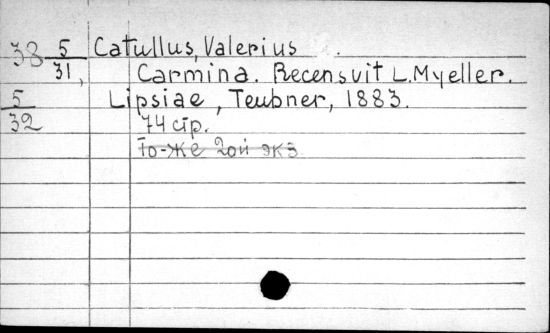 38 5/31, Catullus, Valerius.
Carmina. Recensvit L. Myeller.
5/32 Lipsiae, Teubner, 1883.
74 стр.
То-же 2ой экз